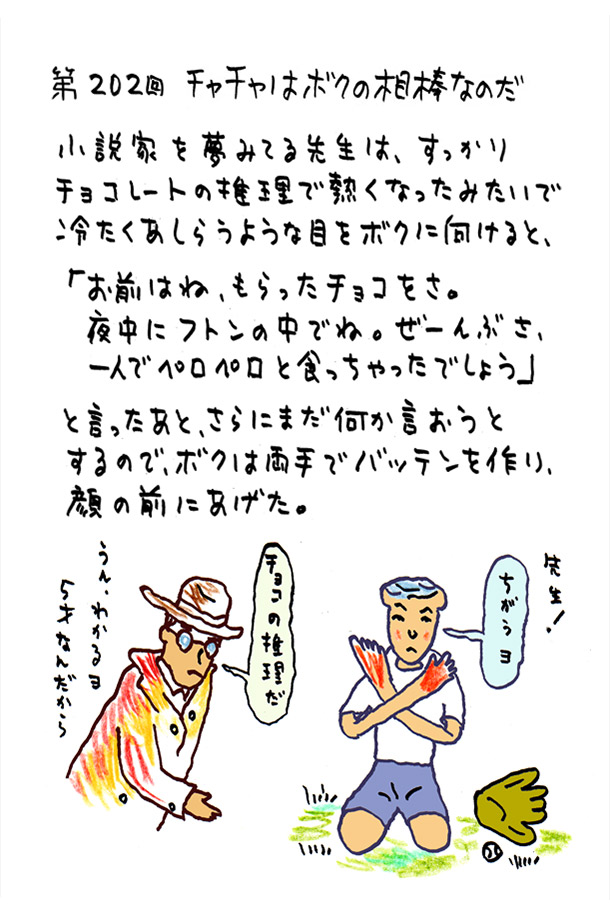 第202回 チャチャはボクの相棒なのだ
小説家を夢みてる先生は、すっかり
チョコレートの推理で熱くなったみたいで
冷たくあしらうような目をボクに向けると、
「お前はね、もらったチョコをさ。
夜中にフトンの中でね。ぜーんぶさ、
一人でペロペロと食っちゃったでしょう」
と言ったあと、さらにまだ何か言おうと
するので、ボクは両手でバッテンを作り、
顔の前にあげた。
先生!
ちがうヨ
チョコの推理だ
うん、わかるヨ
5才なんだから